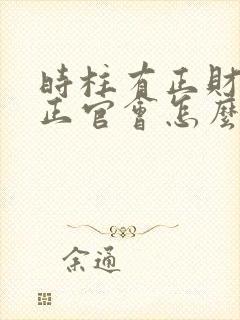 時柱有正財
正官會怎麼
余通